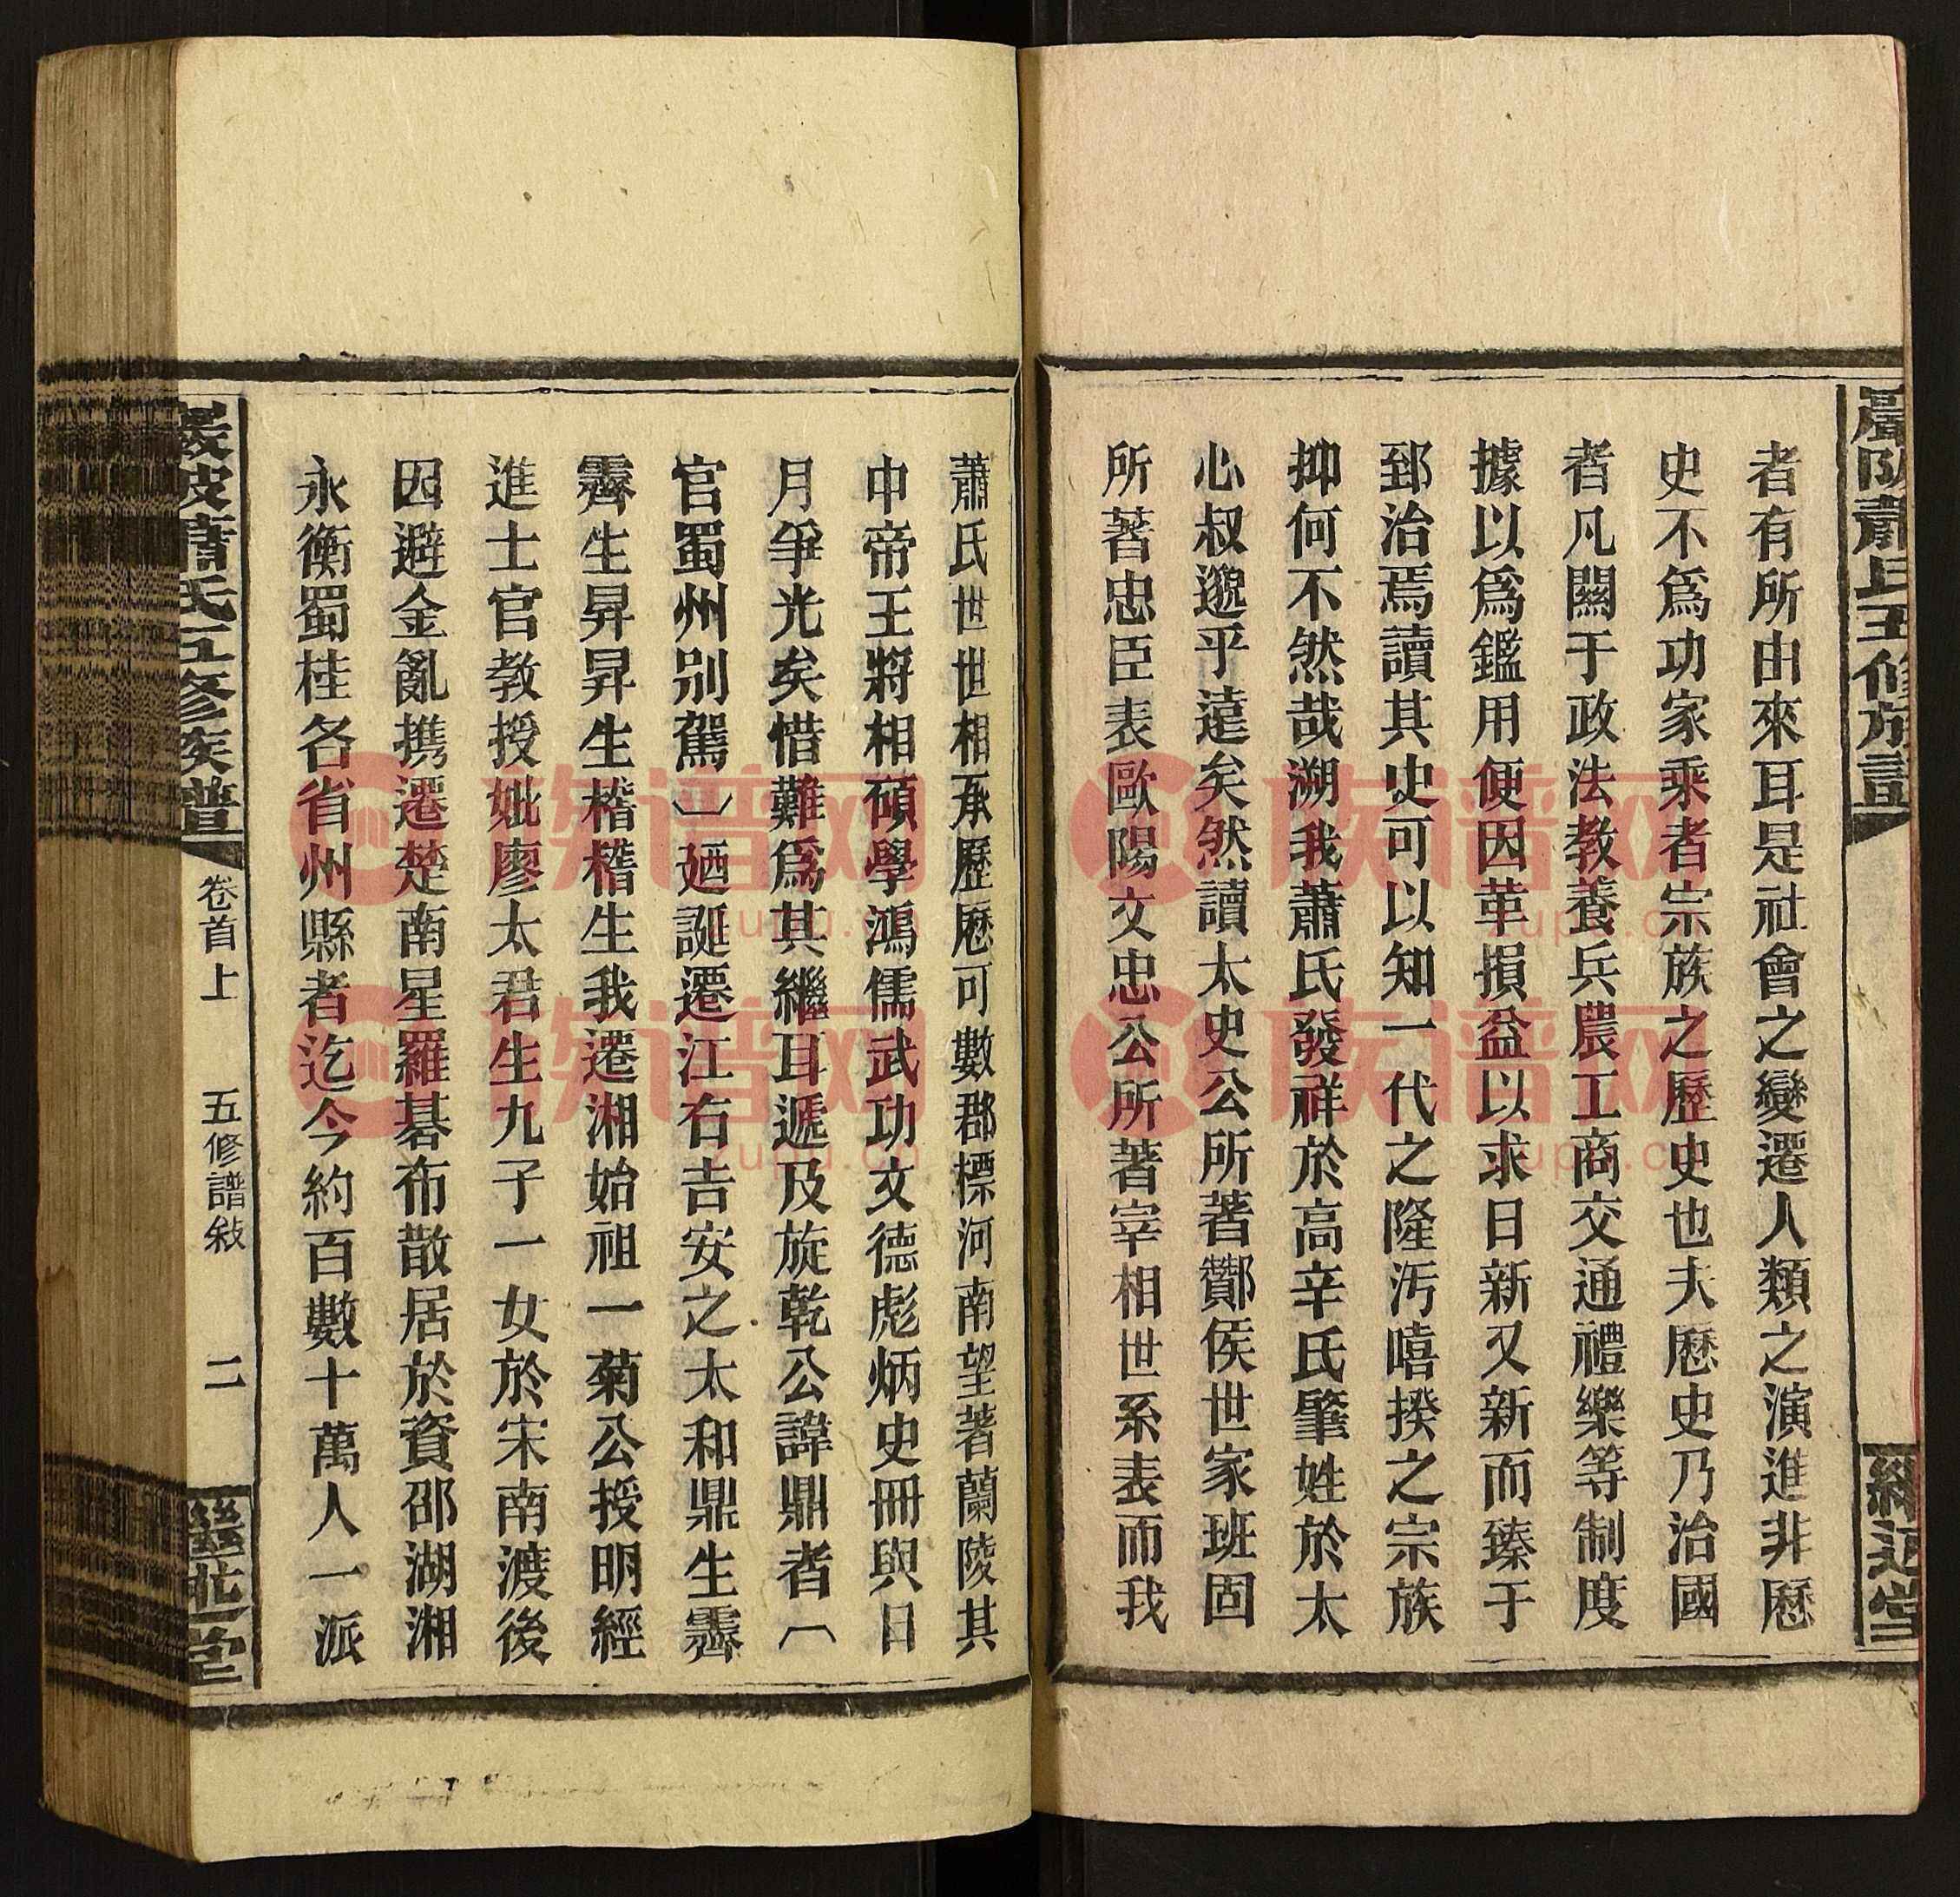 者有所由來耳是社會之變遷人類之演進非歷
史不爲功家乘者宗族之歷史也夫歷史乃治國
者凡關于政法教養兵農工商交通禮樂等制度
據以爲鑑用便因革損益以求日新又新而臻于
郅治焉讀其史可以知一代之隆汚嘻揆之宗族
抑何不然哉溯我蕭氏發祥於高辛氏肇姓於太
心叔邈乎遠矣然讀太史公所著酇侯世家班固
所著忠臣表歐陽文忠公所著宰相世系表而我
蕭氏世世相承歷歷可數郡標河南望著蘭陵其
中帝王將相碩學鴻儒武功文德彪炳史冊與日
月爭光矣惜難爲其繼耳遞及旋乾公諱鼎者〔
官蜀州別駕〕廼誕遷江右吉安之太和鼎生霽
霽生昇昇生楷楷生我遷湘始祖一菊公授明經
進士官教授妣廖太君生九子一女於宋南渡後
因避金亂携遷楚南星羅碁布散居於資邵湖湘
永衡蜀桂各省州縣者迄今約百數十萬人一派
蕭氏五修族譜
卷首上
五修譜敍
二
族谱网
zupu.cn
族谱网
zupu.cn
族谱网
zupu.cn
族谱网
zupu.cn